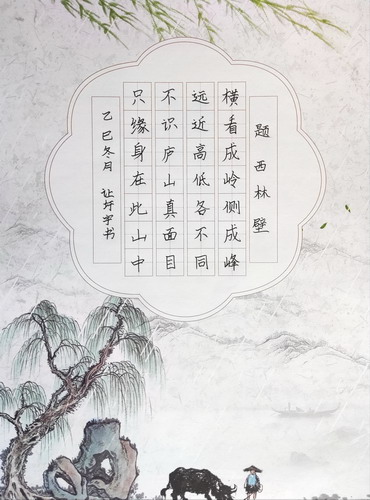 题西林壁
横看成岭侧成峰
远近高低各不同
不识庐山真面目
只缘身在此山中
乙巳冬月